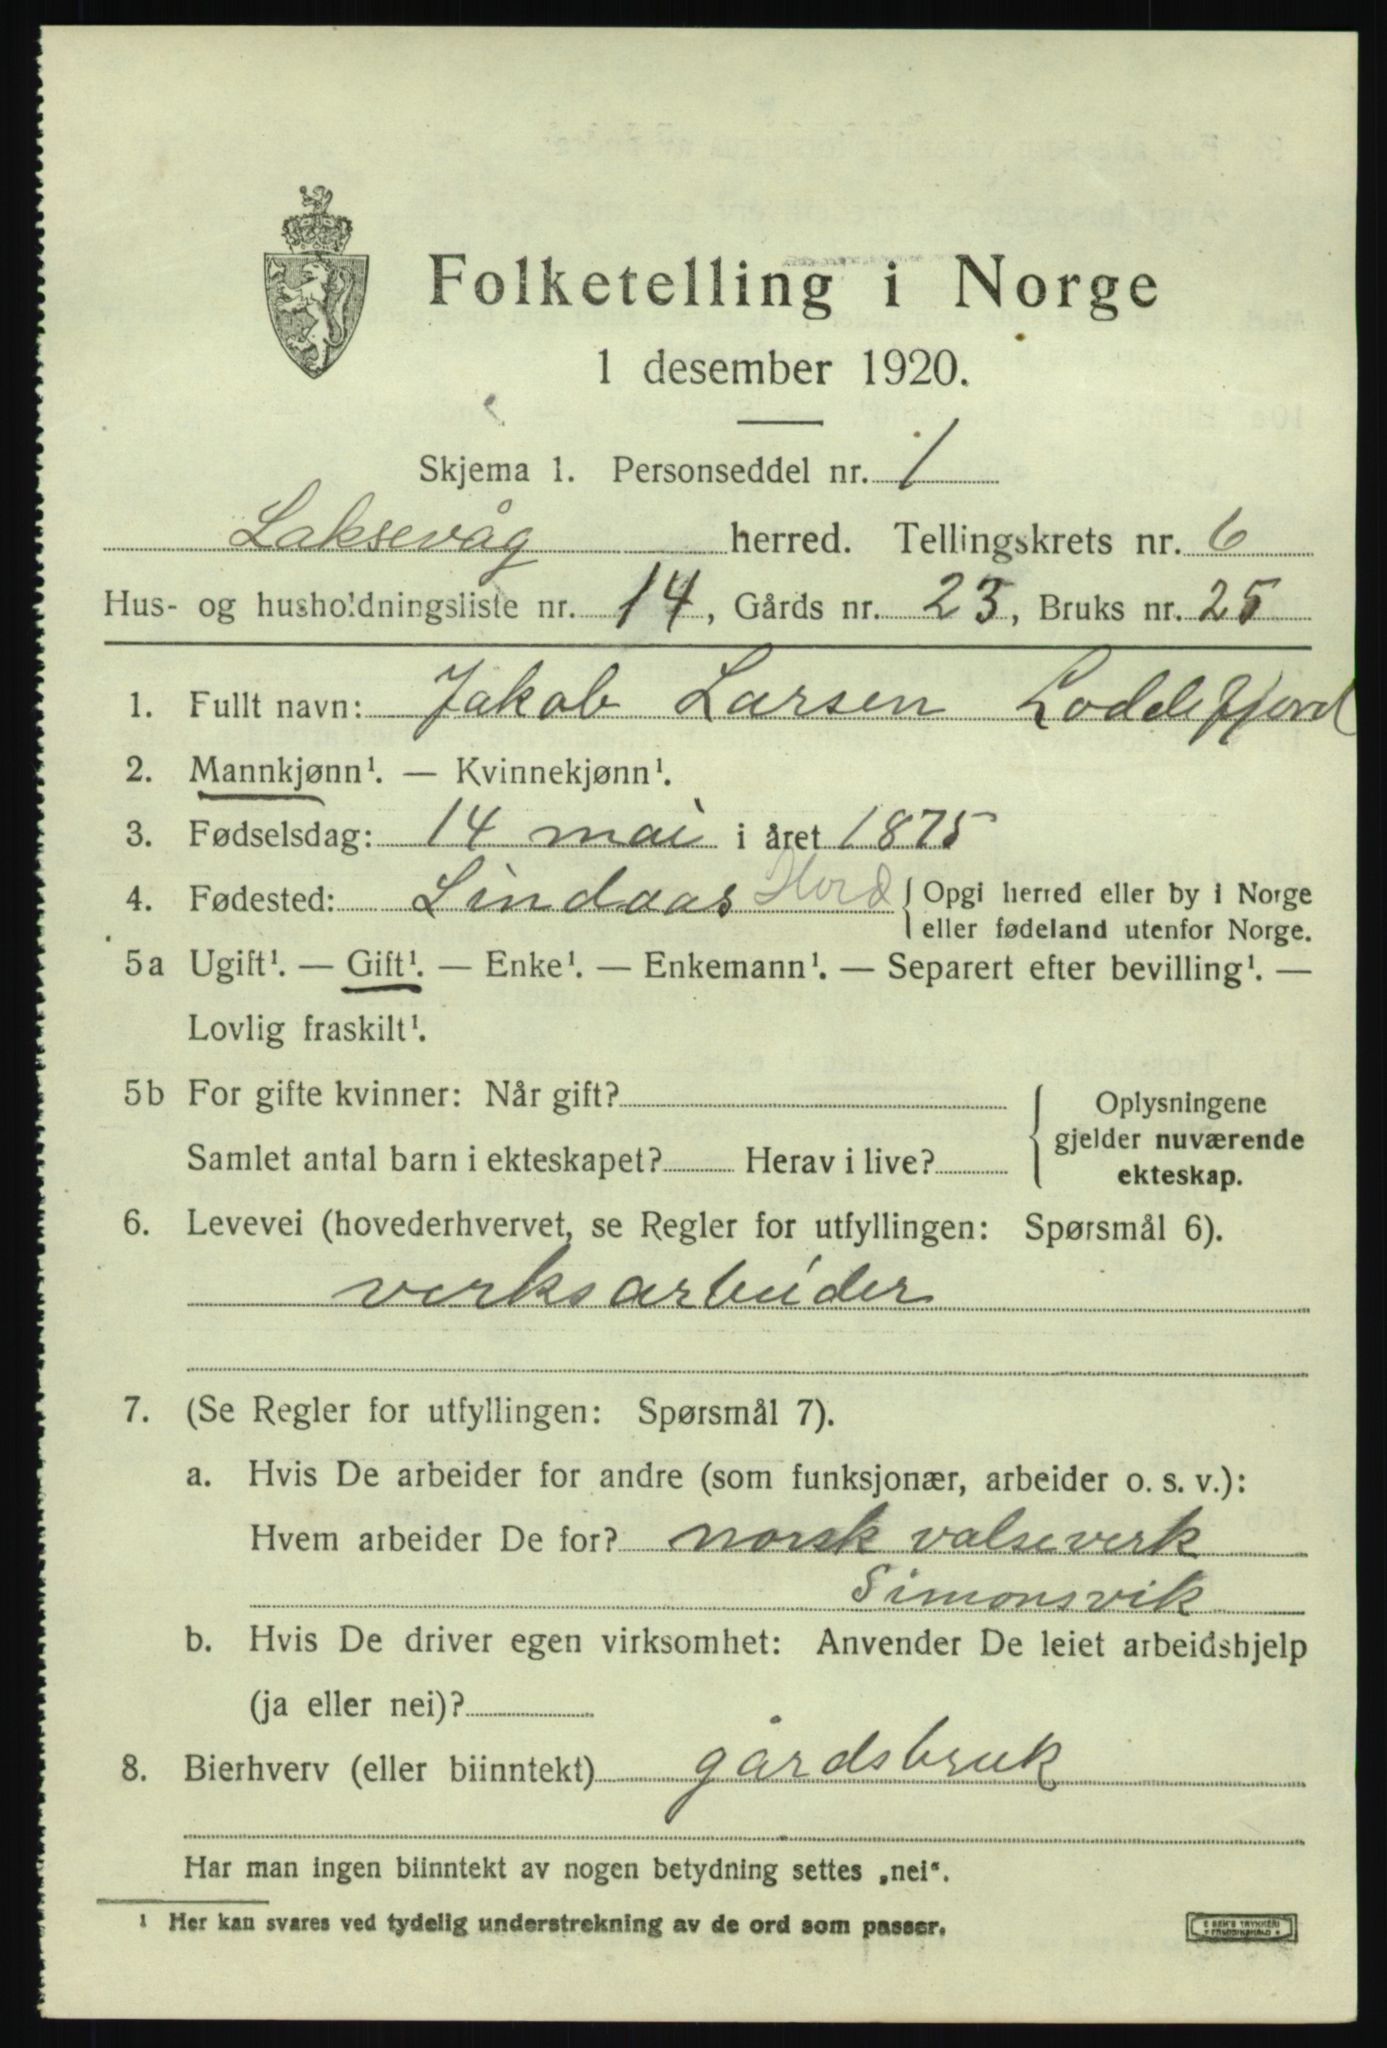 Folketelling i Norge
1 desember 1920.
Skjema 1. Personseddel nr. 1
Laksevåg herred. Tellingskrets nr. 6
Hus- og husholdningsliste nr. 14, Gårds nr. 23, Bruks nr. 25
1. Fullt navn: Jakob Larsen Loddefjord
2. Mannkjønn¹. — Kvinnekjønn¹.
3. Fødselsdag: 14 mai i året 1875
4. Fødested: Lindaas Hord { Opgi herred eller by i Norge
eller fødeland utenfor Norge.
5a Ugift¹. — Gift¹. — Enke¹. — Enkemann¹. — Separert efter bevilling¹. —
Lovlig fraskilt¹.
5b For gifte kvinner: Når gift?
Samlet antal barn i ekteskapet? Herav i live?
Oplysningene
gjelder nuværende
ekteskap.
6. Levevei (hovederhvervet, se Regler for utfyllingen: Spørsmål 6).
verksarbeider
7. (Se Regler for utfyllingen: Spørsmål 7).
a. Hvis De arbeider for andre (som funksjonær, arbeider o. s. v.):
Hvem arbeider De for? norsk valseverk
Simonsvik
b. Hvis De driver egen virksomhet: Anvender De leiet arbeidshjelp
(ja eller nei)?
8. Bierhverv (eller biinntekt) gårdsbruk
Har man ingen biinntekt av nogen betydning settes „nei“.
¹ Her kan svares ved tydelig understrekning av de ord som passer.